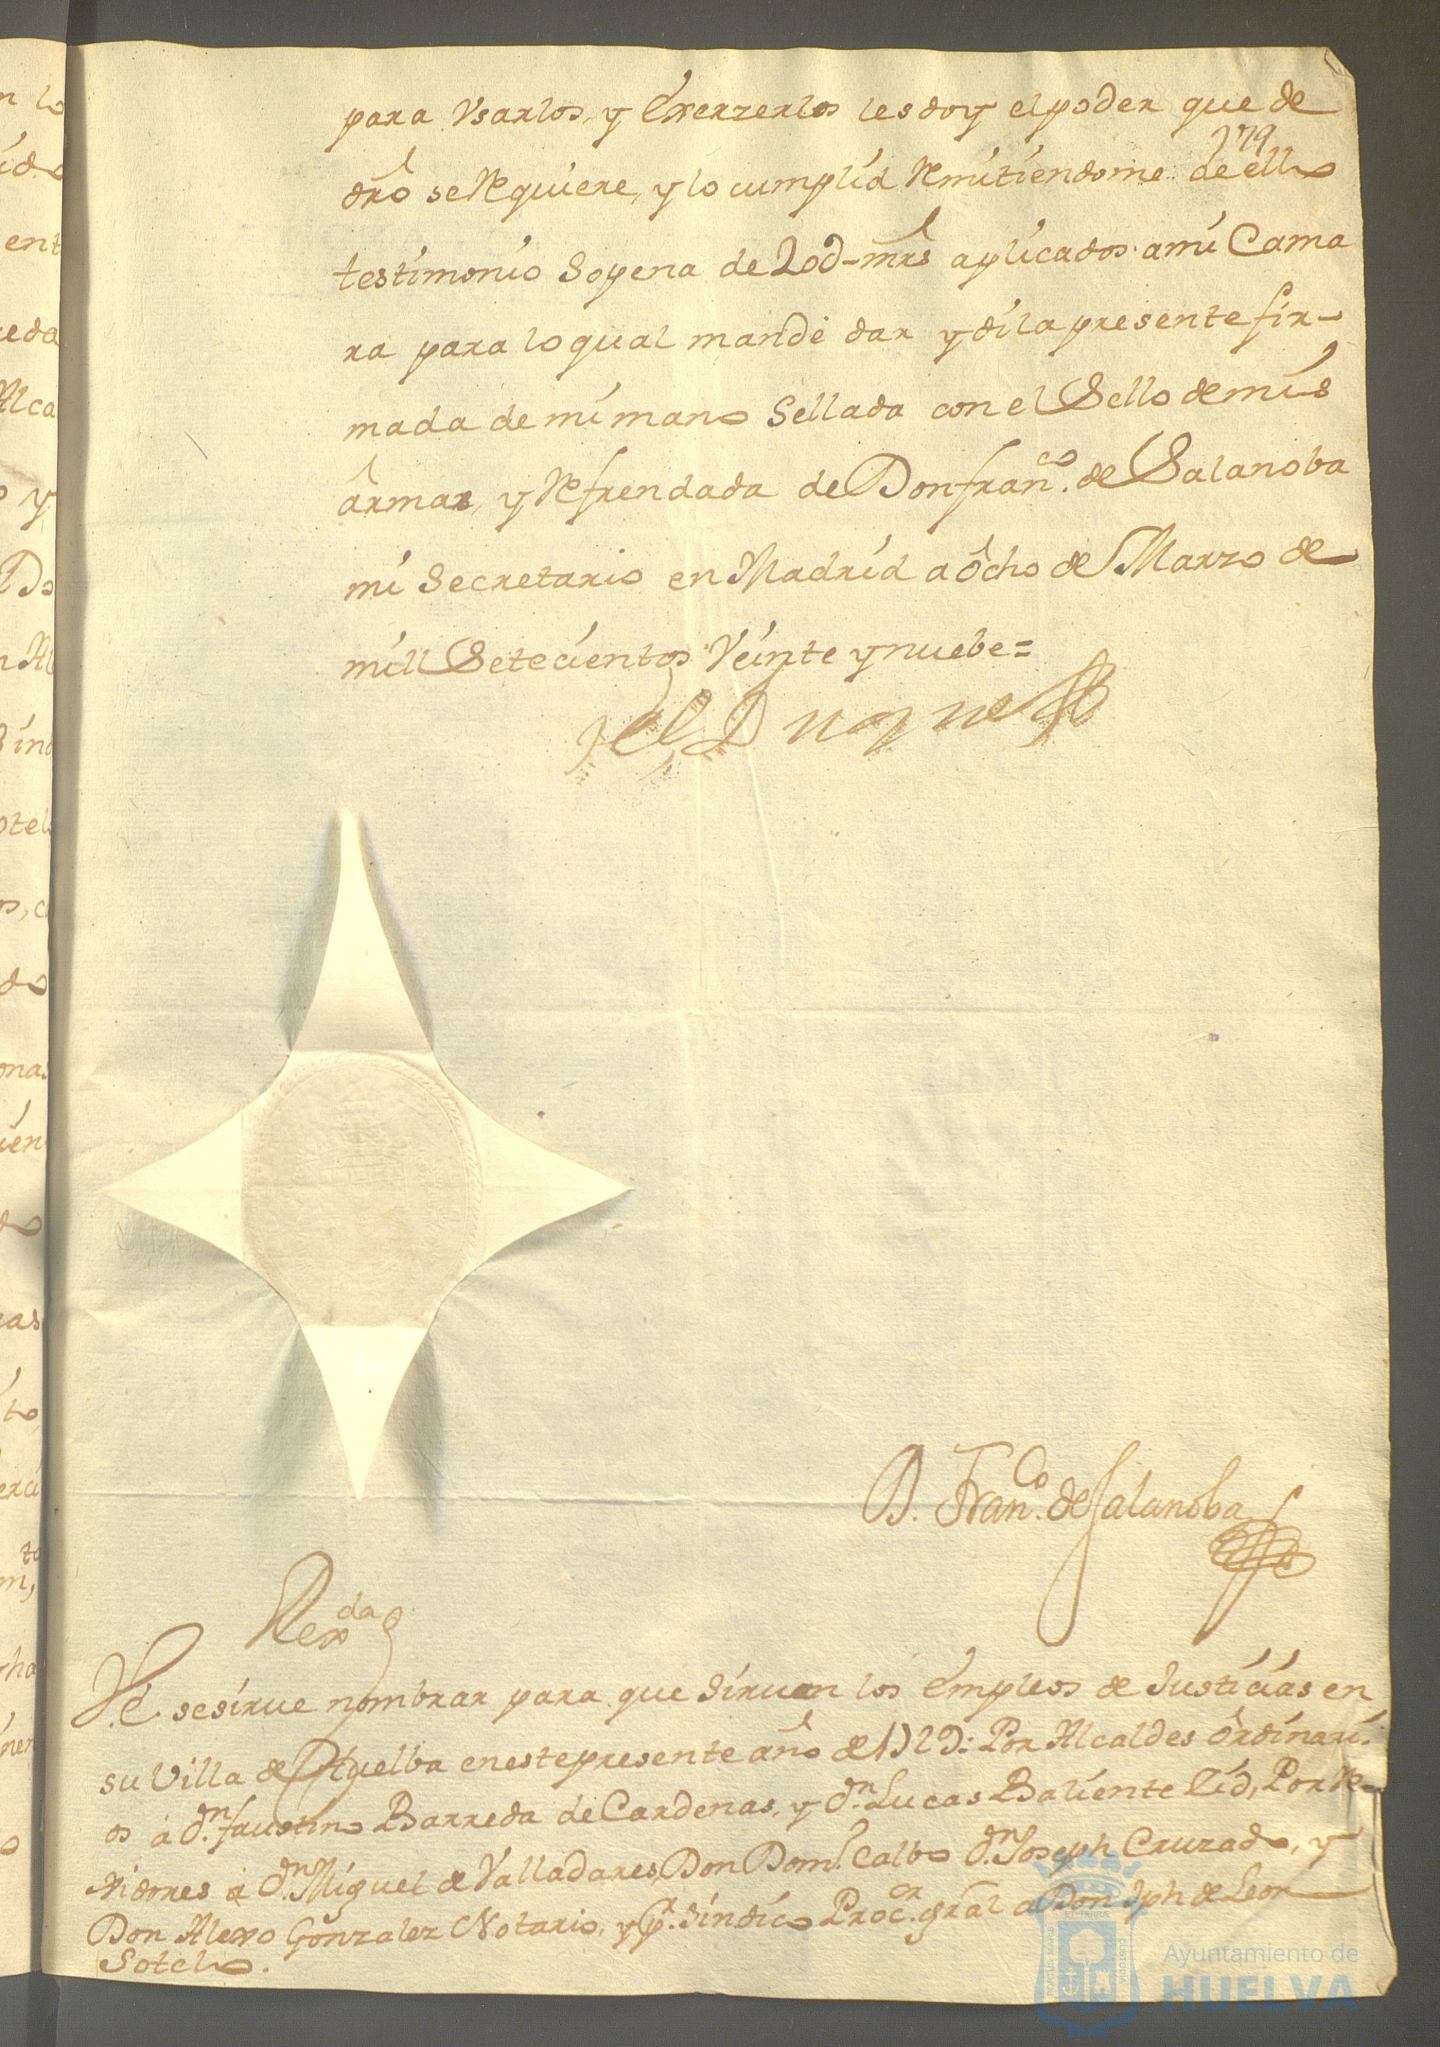 para Vsarlos, y Exerzerlos lesdoy elpoder que de
179
dro se Requiere, y lo cumplid Remitiendome de ello
testimonio Sopena de 20d-mrs aplicados ami Cama
ra para lo qual mande dar y di la presente fir-
mada de mi mano Sellada con el Sello de mis
armas, y Refrendada de Don franco. de Salanoba
mi Secretario en Madrid a ocho de Marzo de
mill Setecientos Veinte y nuebe=
el Duque
D. Franco. de Salanoba
Rexda
V.E. se sirue nombrar para que siruan los empleos de Justicias en
su Villa de Huelba en este presente año de 1729: Por Alcaldes ordinari-
os a Dn. faustino Barreda de Cardenas, y Dn. Lucas Baliente Cid, Por Re-
xidores a Dn. Miguel de Valladares, Don Domo. Calbo Dn. Joseph Cruzado, y
Don Alexo Gonzalez Notario, y pr. sindico Procor. gral a Don Jph de Leon
Sotelo.
Ayuntamiento de
HUELVA